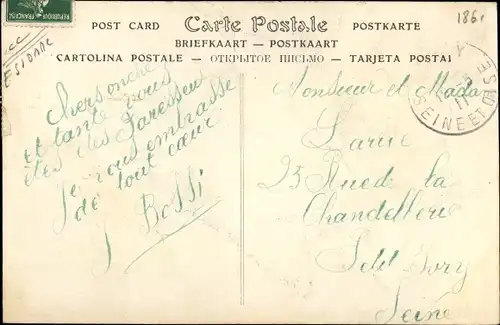 REPUBLIQUE FRANÇAISE
1861
POST CARD Carte Postale POSTKARTE
BRIEFKAART — POSTKAART
CARTOLINA POSTALE — ОТКРЫТОЕ ПИСЬМО — TARJETA POSTAL
SEINE ET OISE
11
et tante vous
êtes des Paresseux
Je vous embrasse
de tout cœur
J Bossi
Monsieur et Mada
Larue
23 Rue de la
Chandellerie
Petit Ivry
Seine